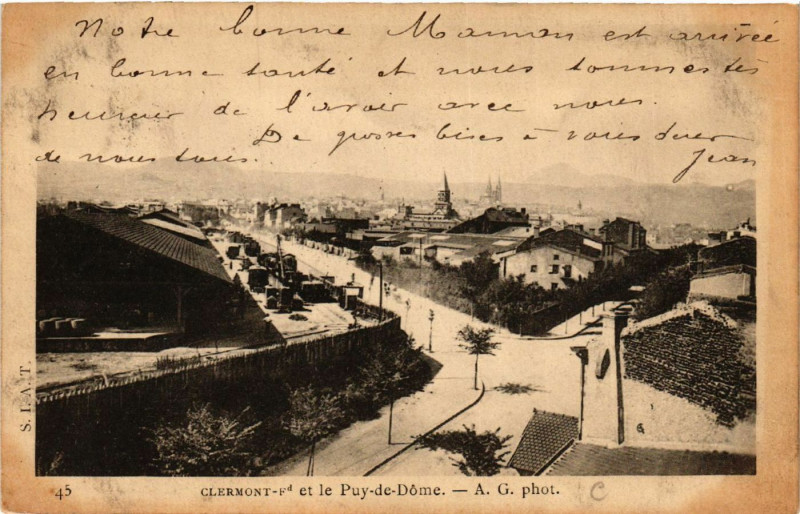 Notre bonne Maman est arrivée
en bonne santé et nous sommes tès
heureux de l'avoir avec nous.
De grosses bises à vous deux
de nous tous. Jean
S. I. A. T.
45 CLERMONT-Fd et le Puy-de-Dôme. — A. G. phot. C